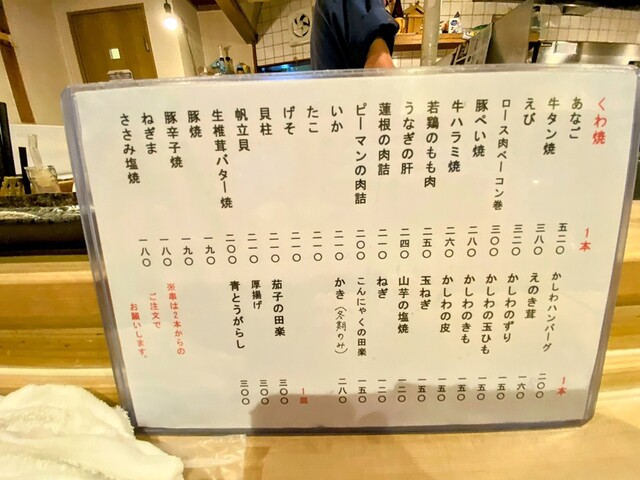 くわ焼　1本
あなご　五二〇
牛タン焼　三八〇
えび　三二〇
ロース肉ベーコン巻　三〇〇
豚ぺい焼　二八〇
牛ハラミ焼　二六〇
若鶏のもも肉　二五〇
うなぎの肝　二四〇
蓮根の肉詰　二一〇
ピーマンの肉詰　二〇〇
いか　二一〇
たこ　二一〇
げそ　二一〇
貝柱　二一〇
帆立貝　二一〇
生椎茸バター焼　二〇〇
豚焼　一九〇
豚辛子焼　一九〇
ねぎま　一八〇
ささみ塩焼　一八〇
1本
かしわハンバーグ　二〇〇
えのき茸　一六〇
かしわのずり　一五〇
かしわの玉ひも　一五〇
かしわのきも　一五〇
かしわの皮　一五〇
玉ねぎ　一五〇
山芋の塩焼　一二〇
ねぎ　一二〇
こんにゃくの田楽　一五〇
かき（冬期のみ）　二八〇
一皿
茄子の田楽　三〇〇
厚揚げ　三〇〇
青とうがらし　三〇〇
※串は2本からの
ご注文で
お願いします。